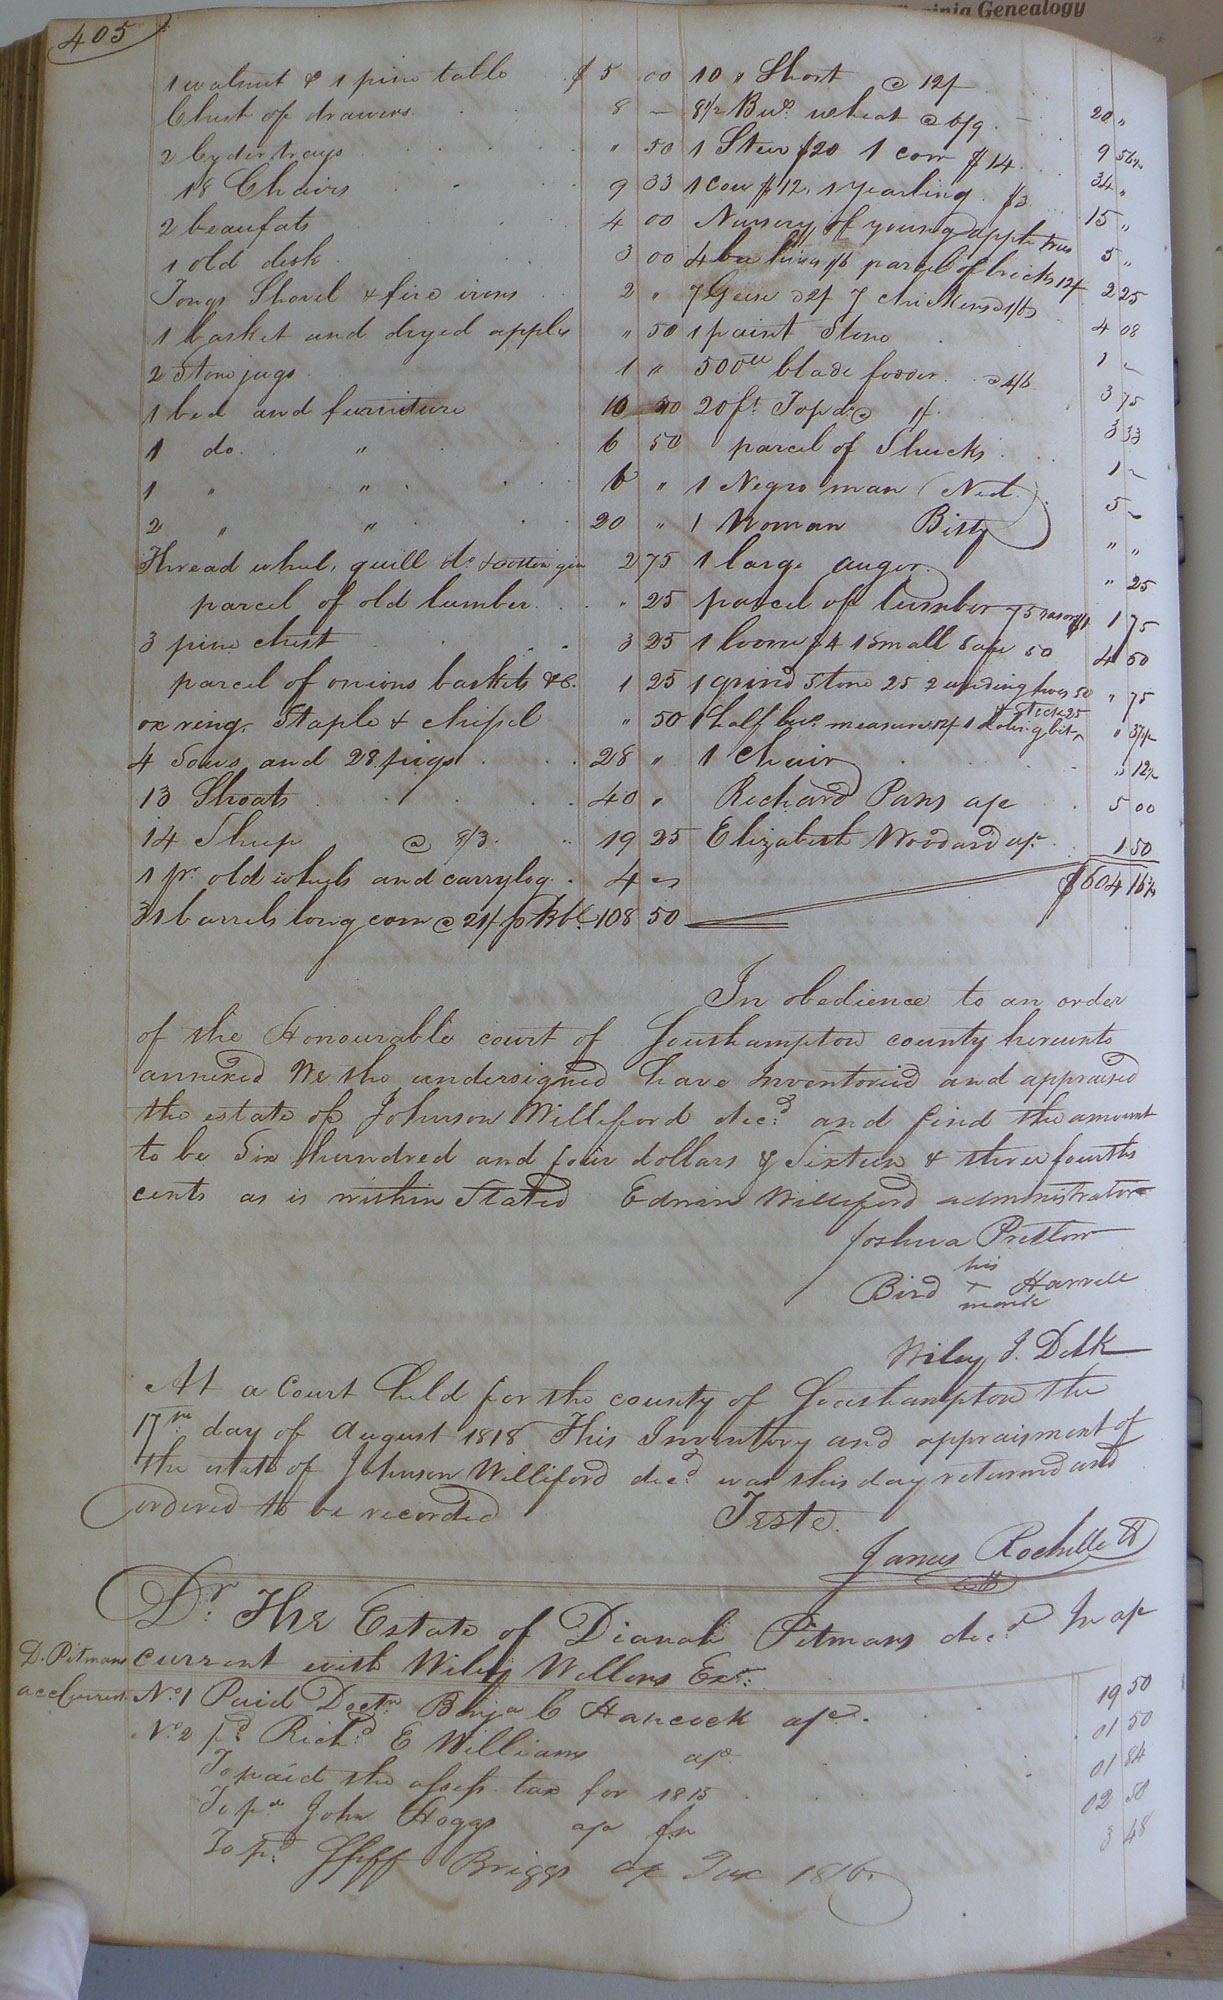 Virginia Genealogy
405
1 walnut & 1 pine table $ 5 00
Chest of drawers 8 —
2 Cyder trays " 50
18 Chairs 9 33
2 beaufats 4 00
1 old desk 3 00
Tongs Shovel & fire irons 2 "
1 basket and dryed apples " 50
2 Stone jugs 1 "
1 bed and furniture 10
1 do " 6 50
1 " " 6 "
2 " " 20 "
Thread wheel, quill do & cotton gin 2 75
parcel of old lumber " 25
3 pine chest 3 25
parcel of onions baskets &c. 1 25
ox ring, Staple & chisel " 50
4 Sows and 28 pigs 28 "
13 Shoats 40 "
14 Sheep @ 8/3 19 25
1 pr old wheels and carrylog 4 "
31 barrels long corn @ 21/ p Rbl. 108 50
10 " Short @ 12/ 20 "
8 1/2 Bus. wheat @ 6/9 9 56 1/4
1 Steer $20 1 cow $14 34 "
1 Cow $12, 1 yearling $3 15 "
Nursery of young apple trees 5 "
4 bee hives 1/6 parcel of bricks 12/ 2 25
7 Geese @ 2/ 7 chickens 4 08
1 paint Stone 1 "
500 blade fodder @ 4/6 3 75
20 ft Top do @ 1/ 3 33
parcel of Shucks 1 "
1 Negro man (Ned) 5 "
1 Woman Bitty " "
1 large auger " 25
parcel of lumber 75 razor $1 1 75
1 loom $4 1 Small Safe 50 4 50
1 grind Stone 25 2 weeding hoes 50 " 75
& Stick 25
1 half bus. measure 1 " 37 1/2
1 Chair " 12 1/2
Richard Pars a/c 5 00
Elizabeth Woodard a/c 1 50
$604 16 3/4
In obedience to an order
of the Honourable court of Southampton county hereunto
annexed We the undersigned have Inventoried and appraised
the estate of Johnson Williford decd. and find the amount
to be Six hundred and four dollars & Sixteen & three fourths
cents as is within Stated Edwin Williford administrator
Joshua Pretlow
his
Bird x Harrell
mark
Wiley J. Delk
At a Court held for the county of Southampton the
17th day of August 1818 This Inventory and appraisment of
the estate of Johnson Williford decd. was this day returned and
ordered to be recorded Teste.
James Rochelle
Dr. The Estate of Dianah Pitmans decd In a/c
D. Pitmans current with Wiley Wellons Exr.
acc Current No. 1 Paid Doctr. Benja C Hancock a/c 19 50
No. 2 pd Richd. E Williams a/c 01 50
To paid the assess. tax for 1815 01 84
To pd John Hoggs a/c 02 50
To pd. Shff Briggs a/c Tax 1816 3 48